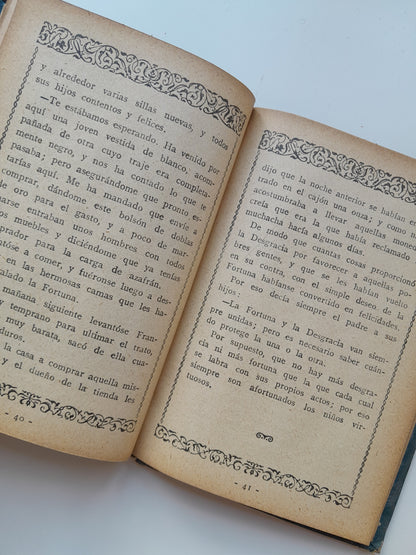 y alrededor varias sillas nuevas, y todos
sus hijos contentos y felices.
—Te estábamos esperando. Ha venido por
aquí una joven vestida de blanco, acom-
pañada de otra cuyo traje era completa-
mente negro, y nos ha contado lo que te
pasaba; pero asegurándome que pronto es-
tarías aquí. Me ha mandado que envié a
comprar, dándome este bolsón de doblas
de oro para el gasto y a poco de mar-
charse entraban unos hombres con todos
los muebles y diciéndome que ya tenías
comprador para la carga de azafrán.
tóse a comer, y fuéronse luego a des-
en las hermosas camas que les ha-
alado la Fortuna.
mañana siguiente levantóse Fran-
temprano para ultimar el trato,
muy barata, sacó de ella cua-
duros.
la casa a comprar aquella mis-
y el dueño de la tienda les
- 40 -
dijo que la noche anterior se habían
trado en el cajón una onza; y como
acostumbraba a llevar aquellas mone
creía que era la que había reclamado
muchacha hacía algunos días.
De moda que cuantas cosas proporcionó
la Desgracia por favorecer a aquellas po-
bres gentes, y que se les habían vuelto
en su contra, con el simple deseo de la
Fortuna habíanse convertido en felicidades.
Por eso decía siempre el padre a sus
hijos:
—La Fortuna y la Desgracia van siem-
pre unidas; pero es necesario saber cuán-
do protege la una o la otra.
Por supuesto, que no hay más desgra-
cia ni más fortuna que la que cada cual
se labra con sus propios actos; por eso
siempre son afortunados los niños vir-
tuosos.
- 41 -